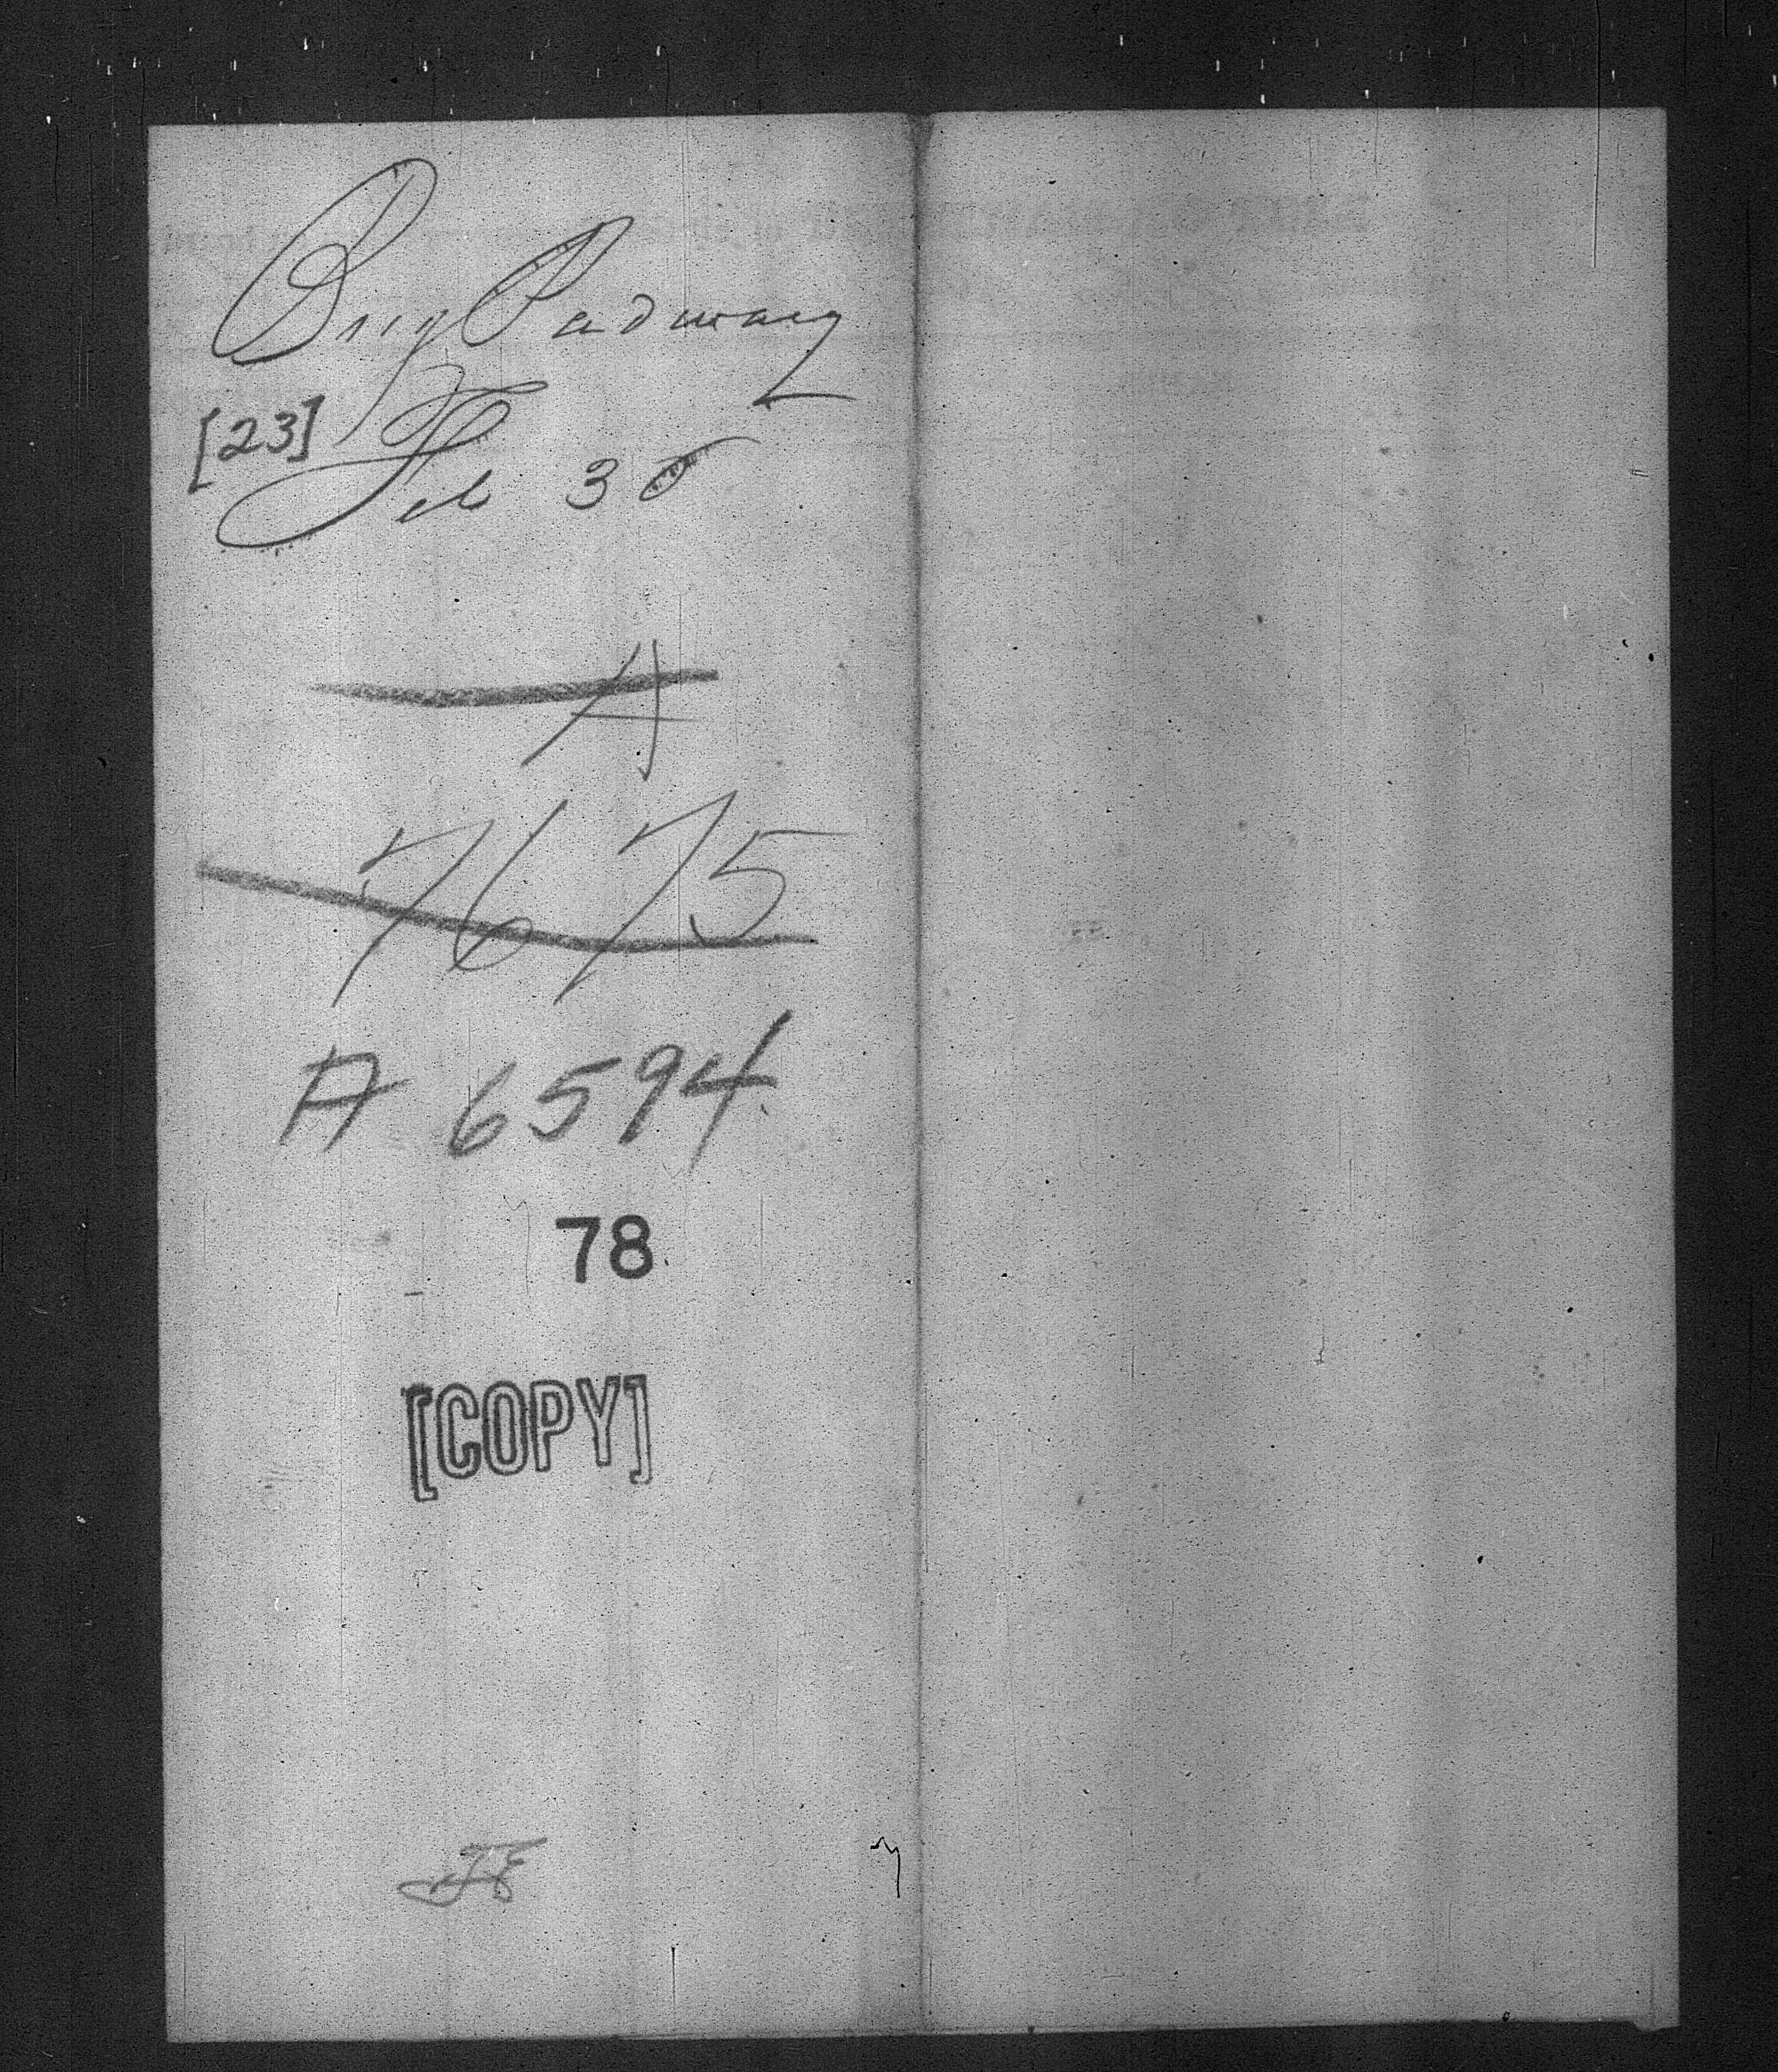 Brig Padwang
[23] Feb 30
A
7675
A 6594.
78.
[COPY]